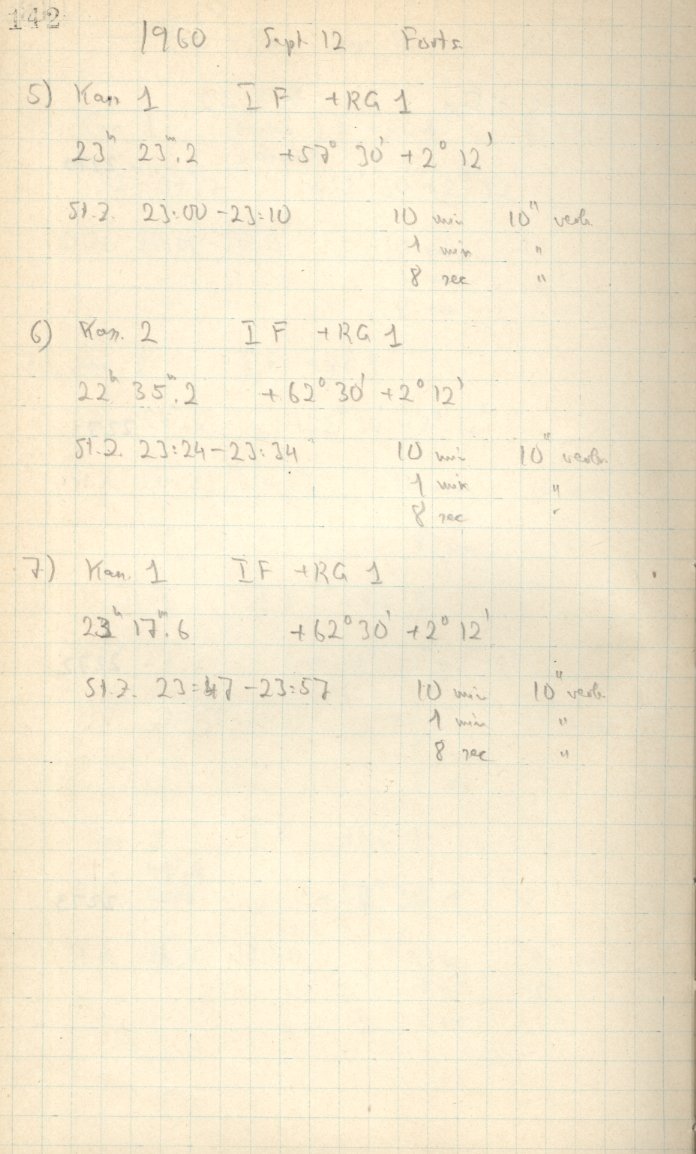 142
1960 Sept 12 Forts.
5) Kan 1 I F +RG 1
23ʰ 23ᵐ.2 +57° 30' +2° 12'
St.Z. 23:00-23:10 10 min 10" verb.
1 min "
8 sec "
6) Kan. 2 I F +RG 1
22ʰ 35ᵐ.2 +62° 30' +2° 12'
St.Z. 23:24-23:34 10 min 10" verb.
1 min "
8 sec "
7) Kan. 1 I F +RG 1
23ʰ 17ᵐ.6 +62° 30' +2° 12'
St.Z. 23:47-23:57 10 min 10" verb.
1 min "
8 sec "